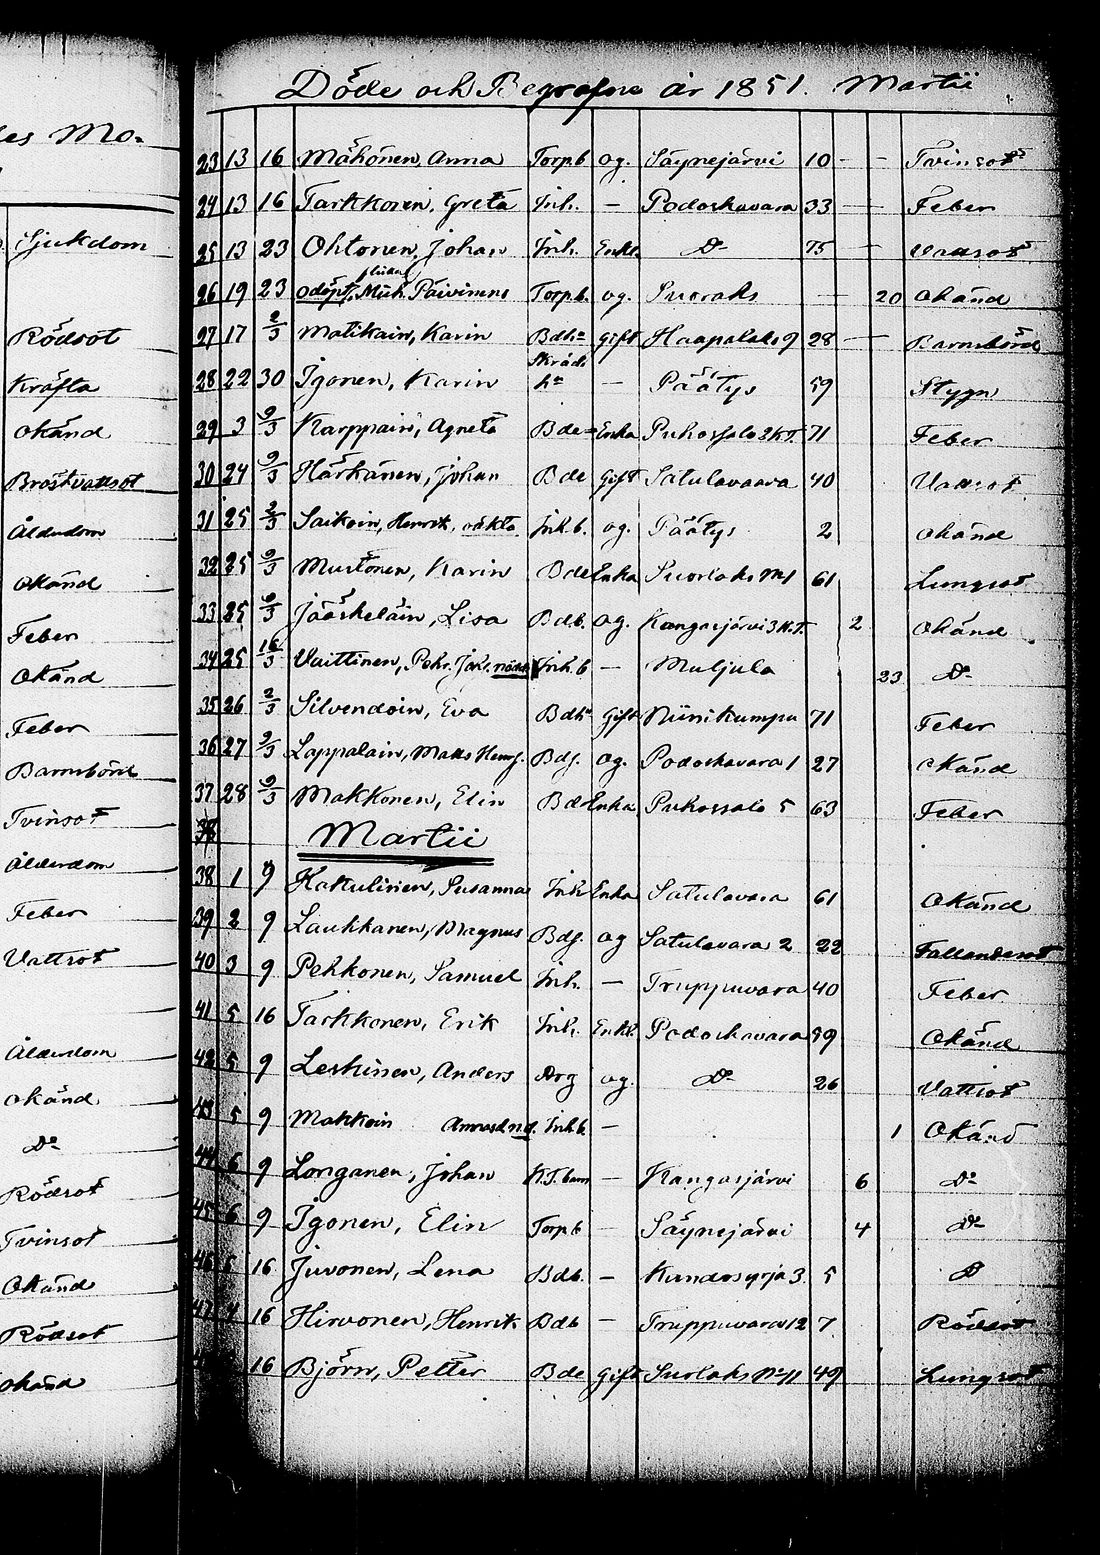 Döde och Begrafne år 1851. Martii
23 13 16 Mähönen, Anna Torp.b og. Säynejärvi 10 - - Tvinsot
24 13 16 Tarkkonen, Greta Inh. - Podoskavara 33 - Feber
25 13 23 Ohtonen, Johan Inh. Enkl. Do 75 - Vattsot
26 19 23 odöpt, Mich. Päivinens Torp.b. og. Suoraks - 20 Okänd
27 17 2/3 Matikain, Karin Bdhu Gift Haapalaks 9 28 - Barnsbörd
Skräd.
28 22 30 Igonen, Karin hu - Päätys 59 Stygn
29 3 9/3 Karppain, Agneta Bde Enka Puhossalo 2 K.T. 71 Feber
30 24 9/3 Härkänen, Johan Bde Gift Satulavaara 40 Vattsot
31 25 2/3 Saikoin, Henrik, oäkta Inh.b. og. Päätys 2 Okänd
32 25 9/3 Mustonen, Karin Bde Enka Suorlaks No 1 61 Lungsot
33 25 9/3 Jääskeläin, Lisa Bdb. og. Kangasjärvi 3 K.T. 2 Okänd
34 25 16/3 Vaittinen, Pehr. Joh. nöddöpt Inh.b - Muljula 23 Do
35 26 2/3 Silvendoin, Eva Bdhu Gift Niinikumpu 71 Feber
36 27 9/3 Lappalain, Matts Henr. Bds. og. Podoskavara 1 27 Okänd
37 28 9/3 Makkonen, Elin Bde Enka Puhossalo 5 63 Feber
Martii
38 1 9 Kakulinen, Susanna Inh Enka Satulavara 61 Okänd
39 2 9 Laukkanen, Magnus Bds. og Satulavara 2 22 Fallandesot
40 3 9 Pekkonen, Samuel Inh. - Truppuvara 40 Feber
41 5 16 Tarkkonen, Erik Inh. Enkl. Podoskavara 59 Okänd
42 5 9 Leskinen, Anders Drg og. Do 26 Vattsot
43 5 9 Makkoin Inh.b - 1 Okänd
44 6 9 Longanen, Johan K.T. barn - Kangasjärvi 6 Do
45 6 9 Igonen, Elin Torp.b - Säynejärvi 4 Do
46 5 16 Juvonen, Lena Bdb. - 3 5 Do
47 4 16 Hirvonen, Henrik Bdb - Truppuvara 12 7 Rödsot
16 Björn, Petter Bde Gift Suorlaks No 11 49 Lungsot
Sjukdom
Rödsot
Kräfta
Okänd
Bröstvattsot
Ålderdom
Okänd
Feber
Okänd
Feber
Barnsbörd
Tvinsot
Ålderdom
Feber
Vattsot
Ålderdom
Okänd
Do
Rödsot
Tvinsot
Okänd
Rödsot
Okänd